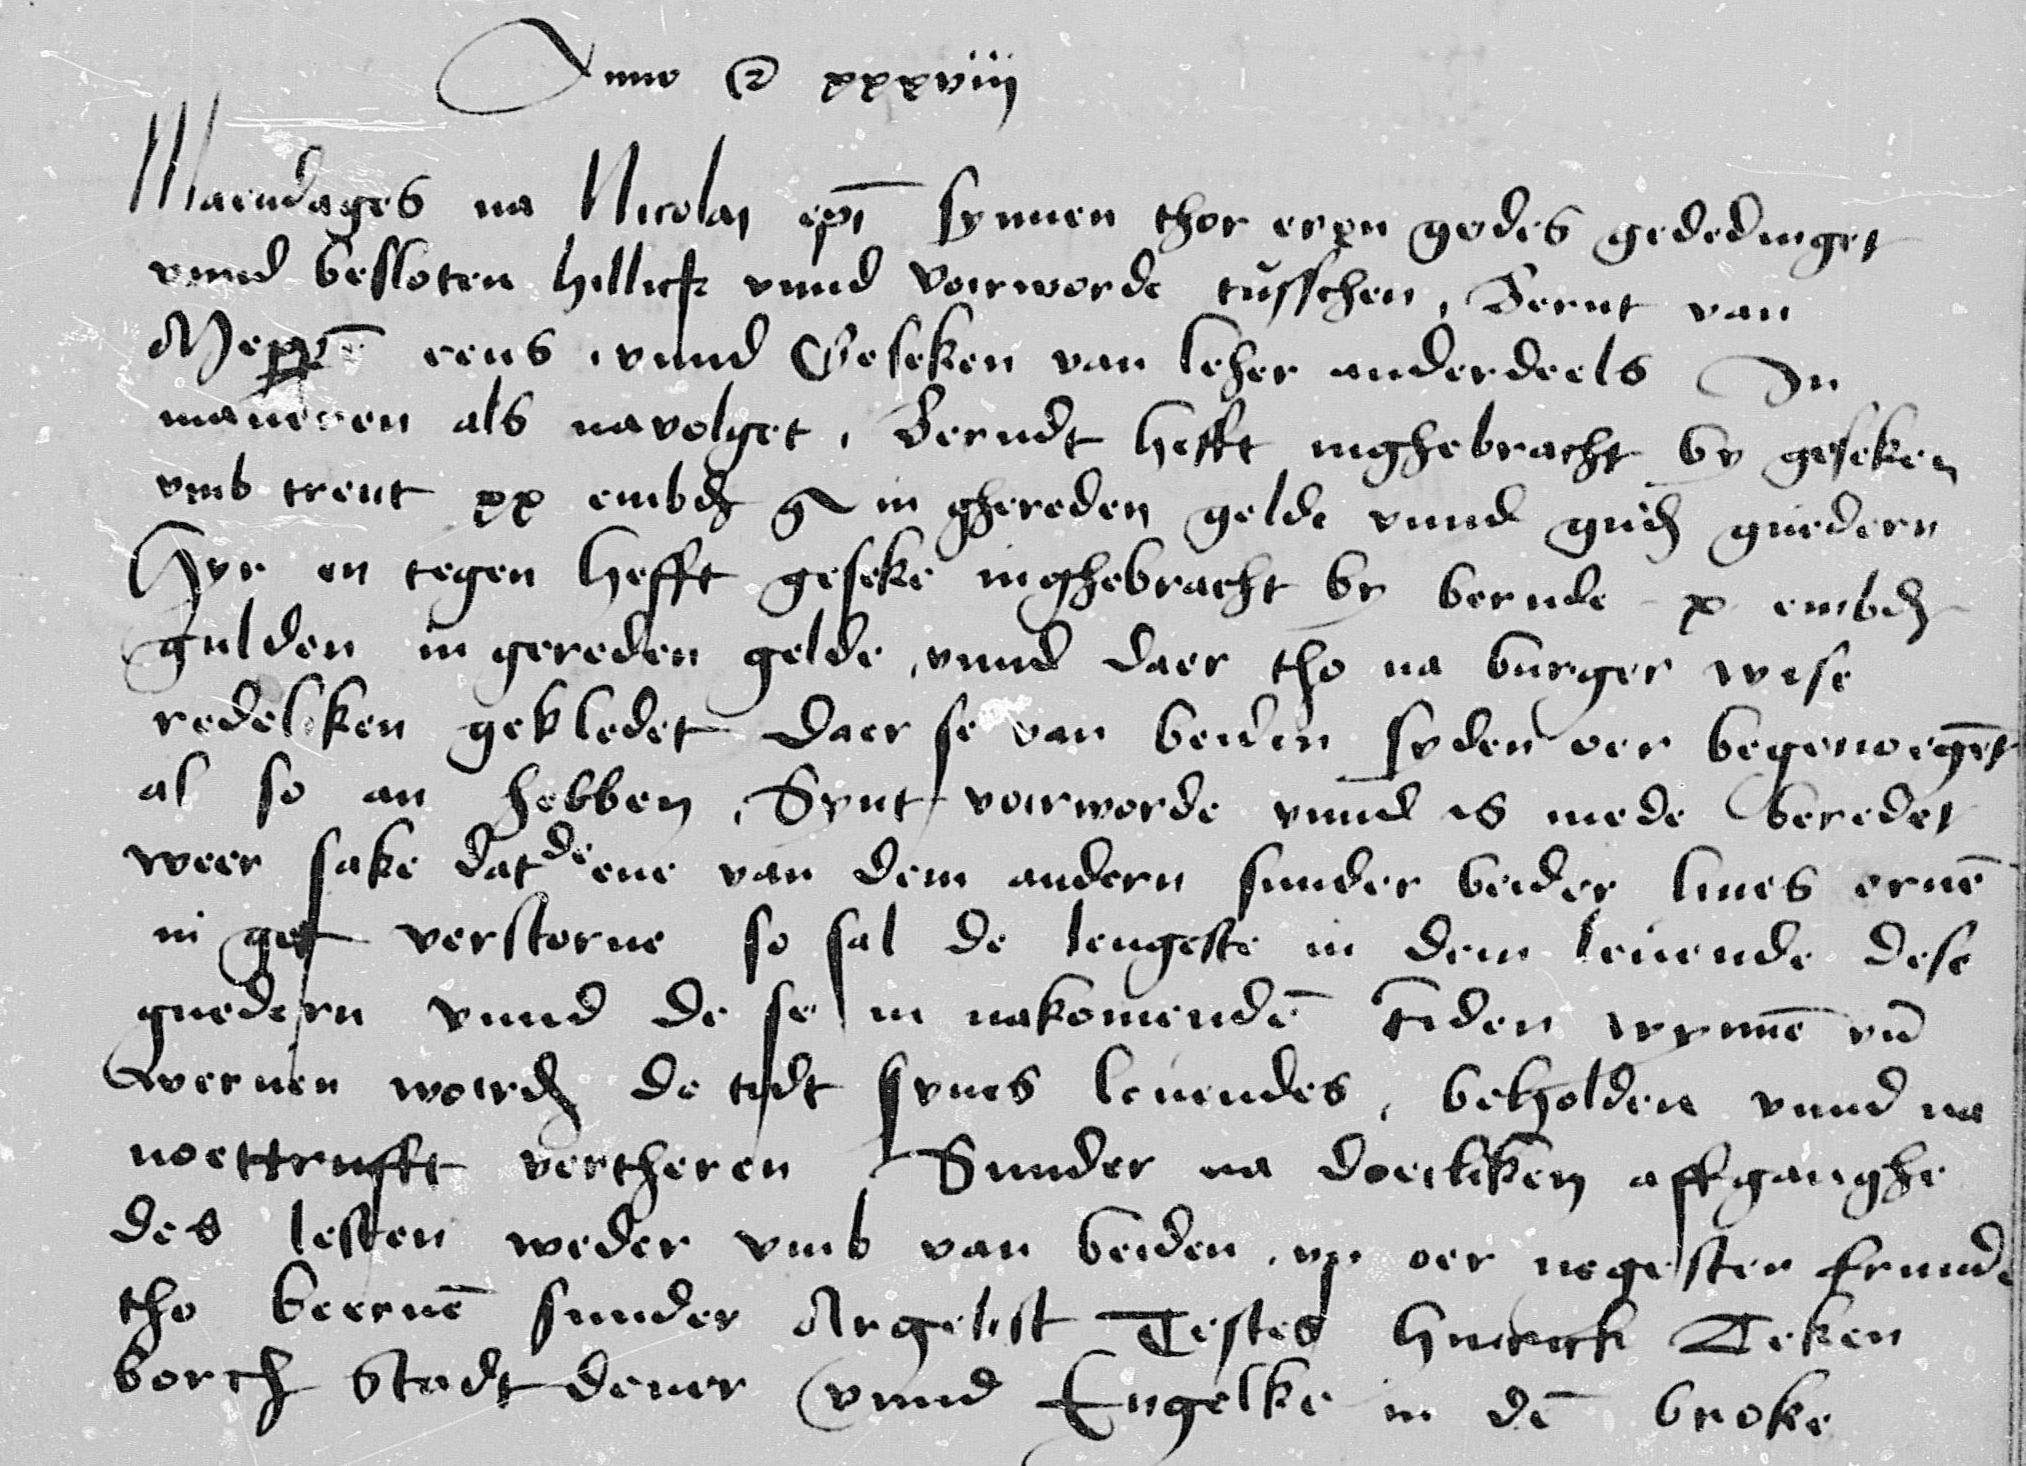 Anno @ xxxviij
Maendages na Nicolaj epi synnen thor eren godes gededinget
vnnd besloten hillick vnnd vorworde tusschen, Bernt van
Mepp̄ eens, vnnd Geseken van leher anderdeels In
maneren als navolget, Berndt hefft inghebracht by geseken
vmb trent xx embd g in ghereden gelde vnnd gued guedern
Hyr en tegen hefft geseke inghebracht by bernde x embd
gulden in gereden gelde, vnnd daer tho na burger wise
redeliken gekledet daer se van beiden syden oer begenoegēt
al so an hebben, Synt vorworde vnnd is mede beredet
weer sake dat de ene van dem andern sunder beider liues eruē
in get verstorue so sal de lengeste in dem leuende dese
guedern vnnd de se in nakomendē tiden wynnē vn̄
weruen word de tidt synes leuendes, beholden vnnd na
noettrufft vertheren Sunder na doetliken affganghe
des lesten weder vmb van beiden, vp oer negester frunde
tho beeruē sunder Argelist Testes Hinrick Teken
borch Stadt dener vnnd Engelke in dē broke